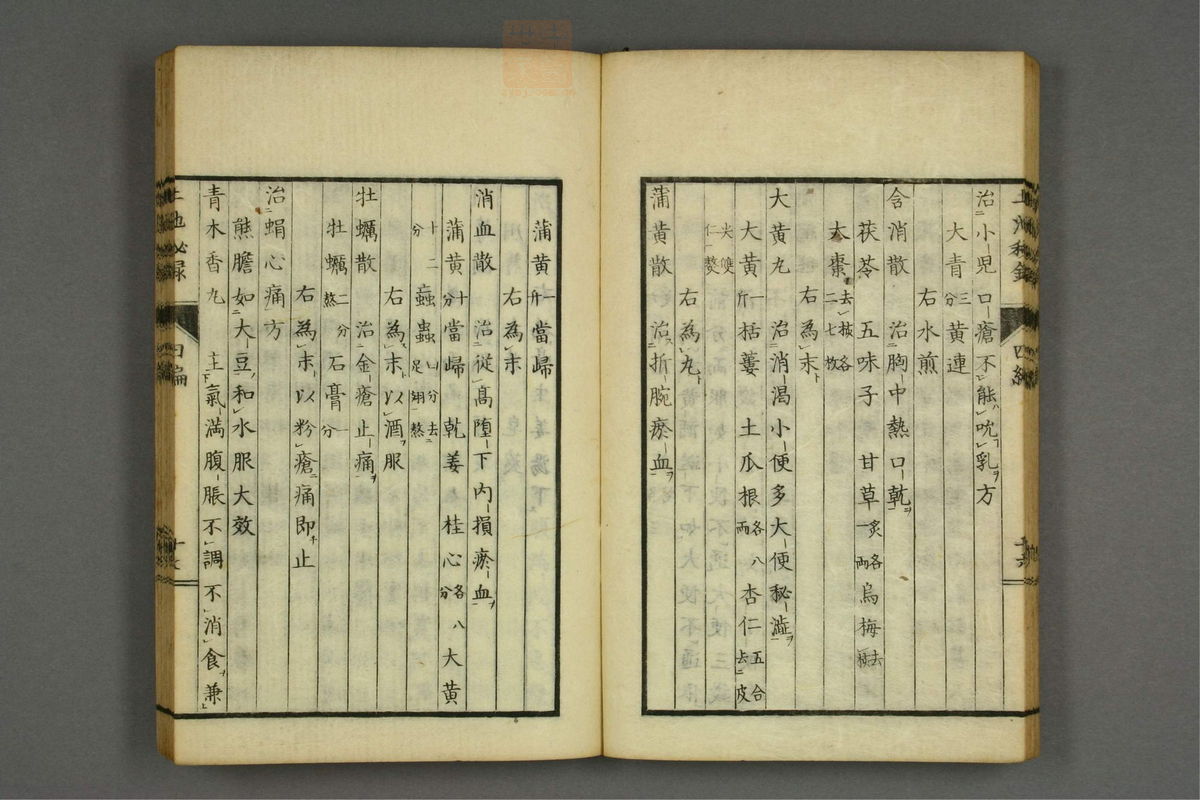 治小児口瘡不能吮乳方
大青三分黄連
右水煎
含消散 治胸中熱口乾
茯苓 五味子 甘草炙各一兩烏梅去核
大棗去核各二七枚
右為末
大黄丸 治消渇小便多大便秘澁
大黄一斤括蔞 土瓜根各八兩杏仁五合去皮
尖雙仁熬
右為丸
蒲黄散 治折腕瘀血
蒲黄一斤當歸
右為末
消血散 治従髙堕下内損瘀血
蒲黄十分當歸 乾姜 桂心各八分大黄
十二分
䗪蟲四分去足翅熬
右為末以酒服
牡蠣散 治金瘡止痛
牡蠣二分熬石膏一分
右為末以粉瘡痛即止
治蜎心痛方
熊膽如大豆和水服大效
青木香丸 主氣満腹脹不調不消食兼
四編